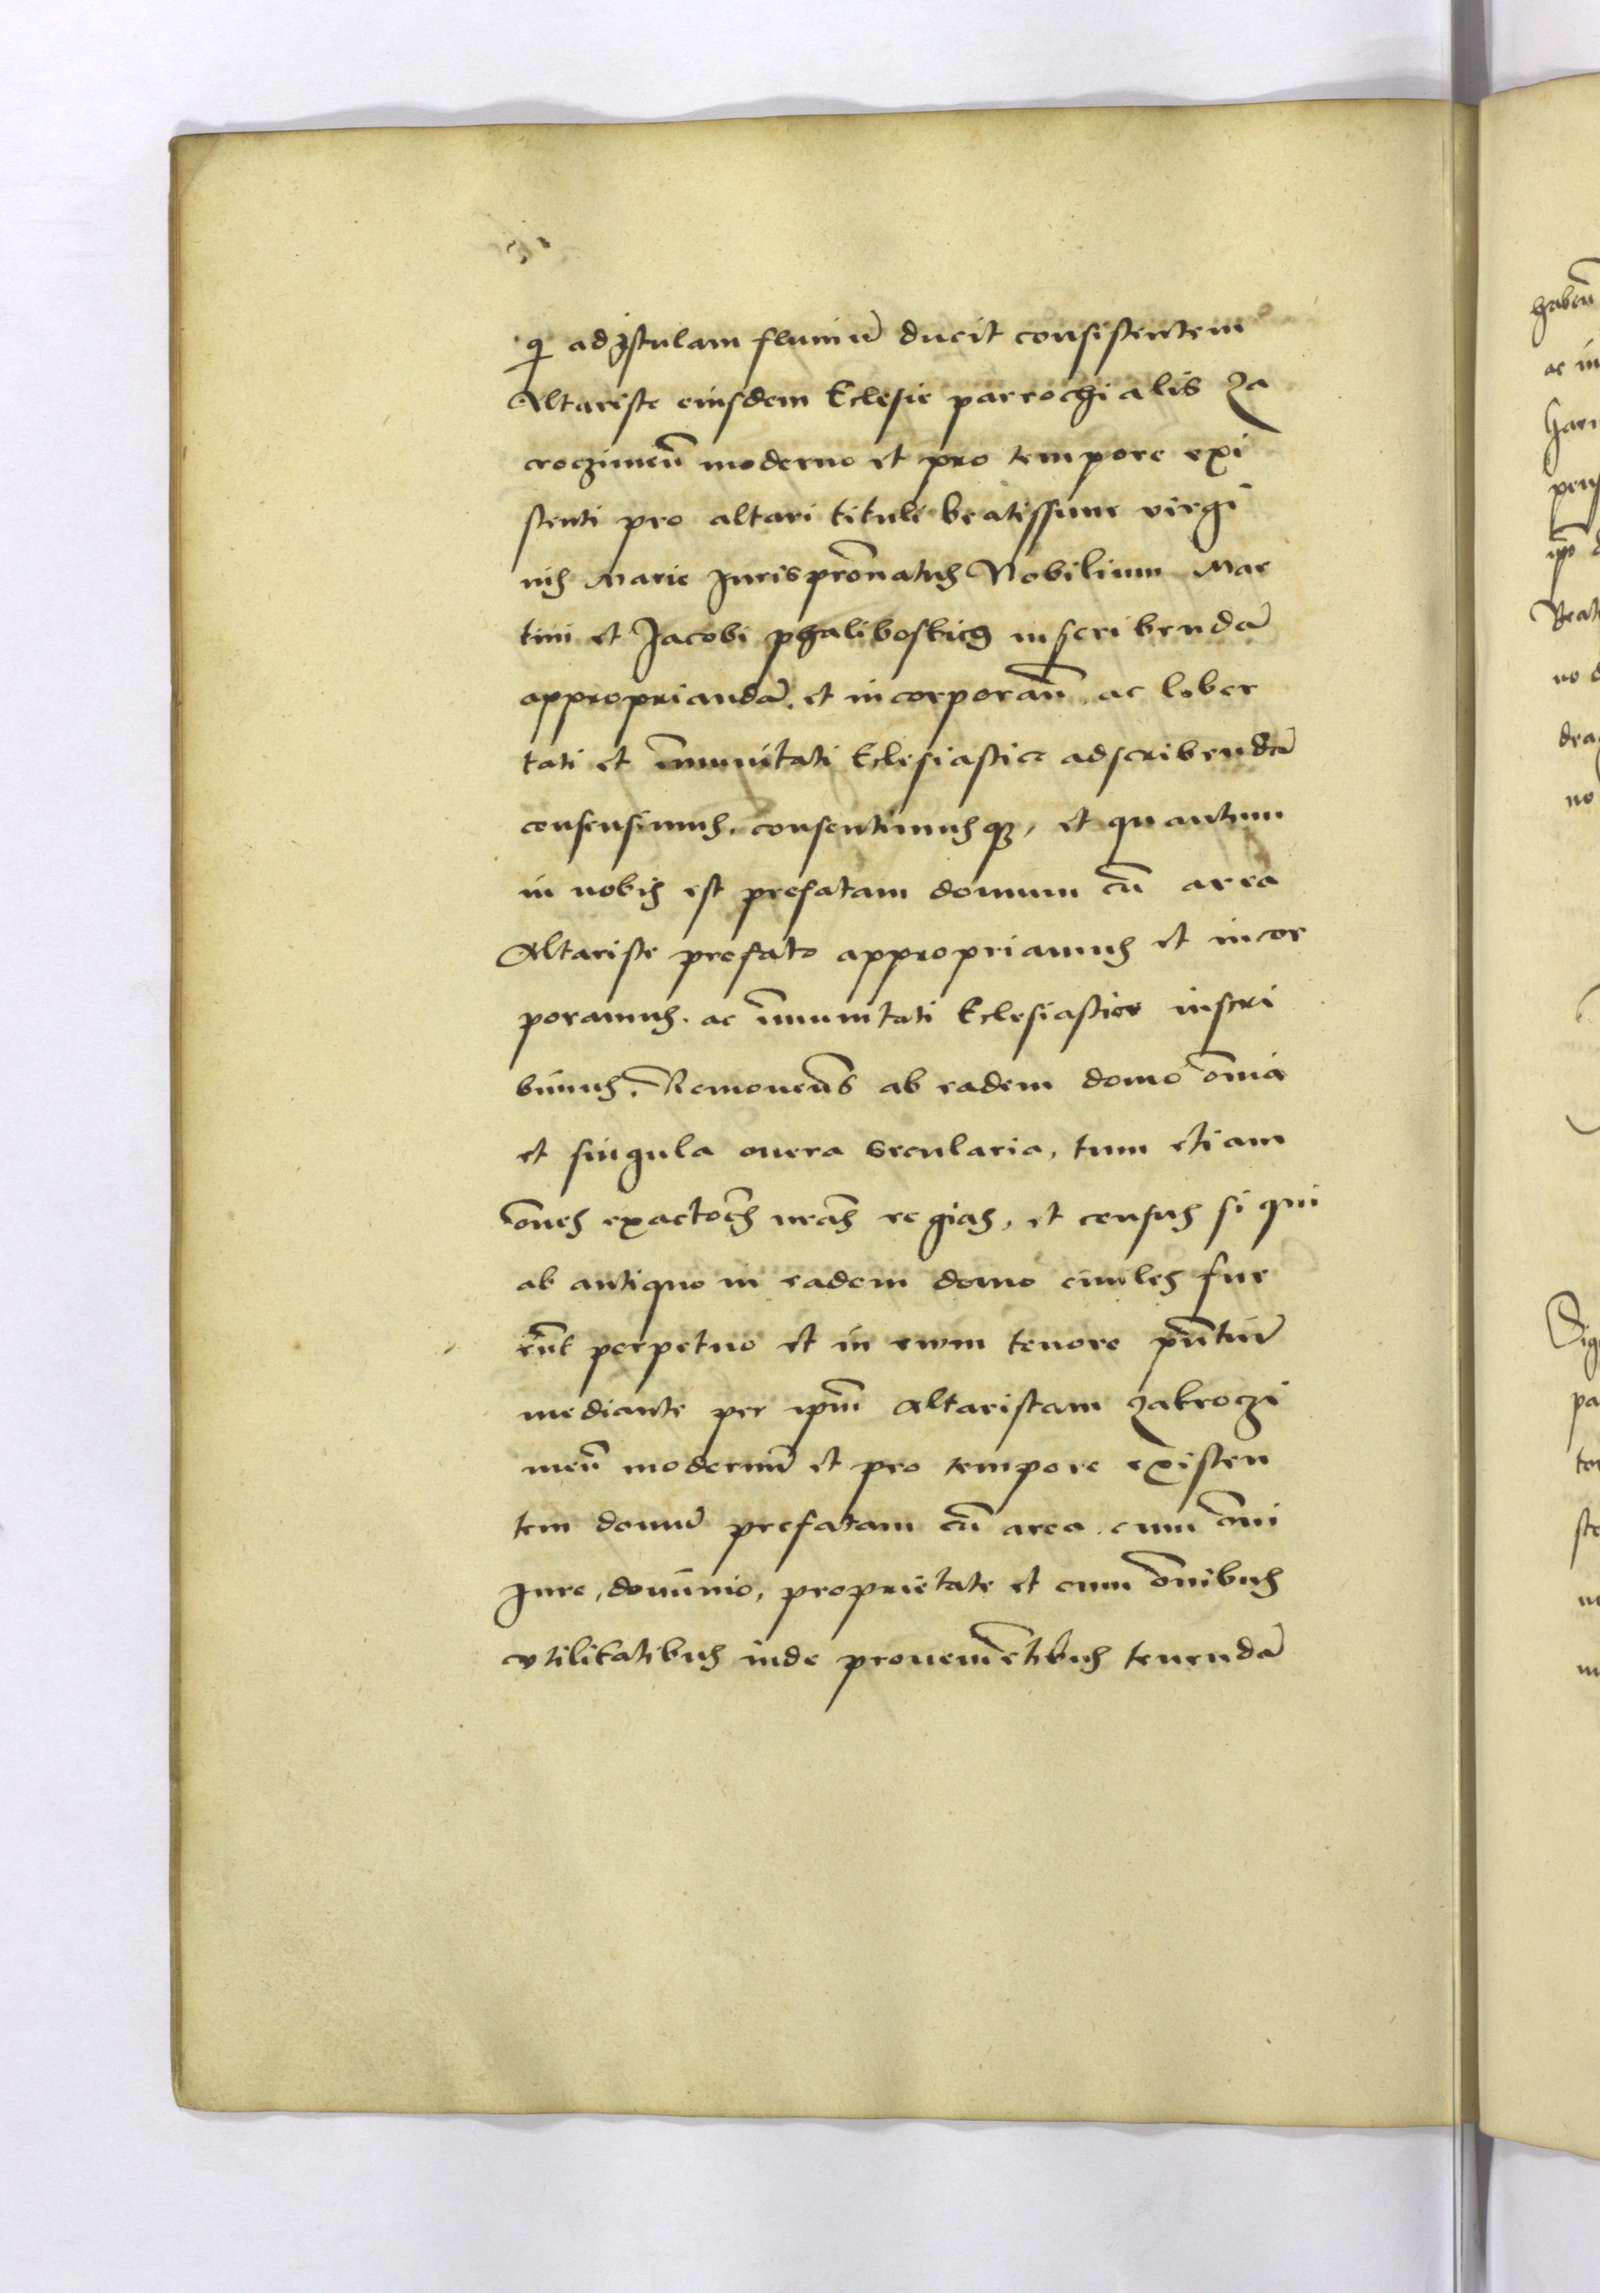 q ad Istulam fluuiũ ducit consistentem
Altariste eiusdem Eclesie parrochialis Za
croczimeñ moderno et pro tempore exi
stenti pro altari tituli beatissime virgi
nis Marie Jurispronatus Nobilium Mar
tini et Jacobi phalibosticz inscribendã
appropriandã. et incorporañ. ac liber
tati et immunitati Eclesiastice adscribendã
consensimus. consentimusqz, et quantum
in nobis est prefatam domum cũ area
Altariste prefato appropriamus et incor
poramus. ac immunitati Eclesiastice inscri
bimus. Remouens ab eadem domo omnia
et singula onera secularia, tum etiam
omnes exactões nrãs regias, et census si qui
ab antiquo in eadem domo ciuiles fue
rũnt perpetuo et in ewm tenore pñtiũ
mediante per ipm̃ Altaristam Zakroczi
meñ modernũ et pro tempore existen
tem domũ prefatam cũ area. cum omni
Jure, dominio, proprietate et cum omnibus
vtilitatibus inde prouenietibus tenendã